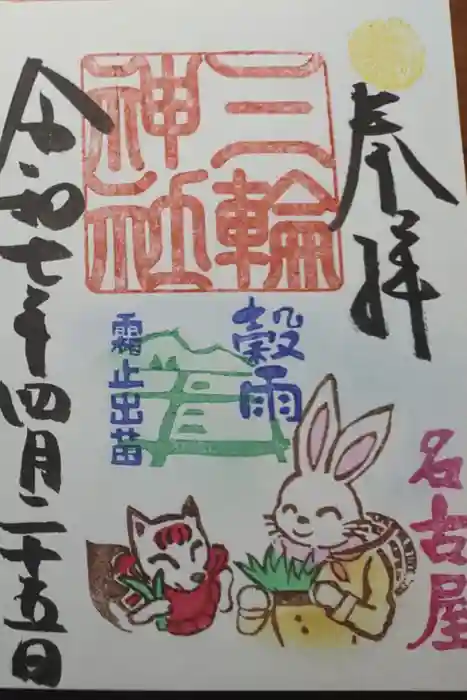 奉拝
三輪
神社
穀雨
霜止出苗
名古屋
令和七年四月二十五日